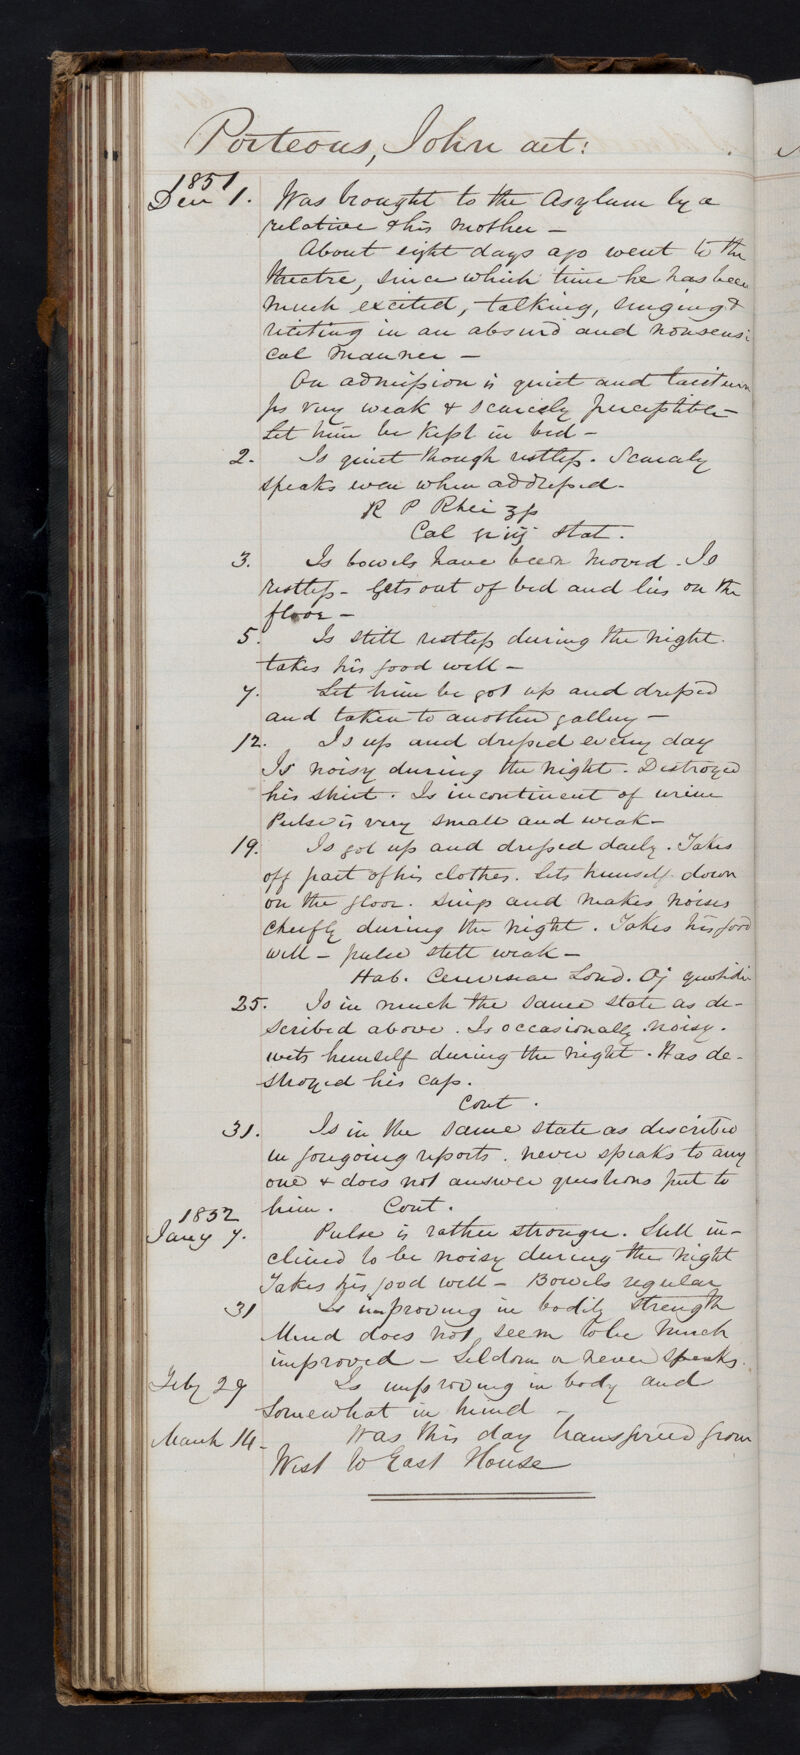 Porteous, John aet:
1851
Decr 1. Was brought to the Asylum by a
relative & his mother —
About eight days ago went to the
theatre, since which time he has been
much excited, talking, singing &
reciting in an absurd and nonsensi
cal manner —
On admission is quiet and taciturn
Ps very weak & scarcely perceptible —
Let him be kept in bed —
2. Is quiet though restless. Scarcely
speaks even when addressed.
R P Rhei
Cal gr iij stat.
3. Is bowels have been moved. Is
restless — Gets out of bed and lies on the
floor —
5. Is still restless during the night.
takes his food well —
7. Let him be got up and dressed
and taken to another gallery —
12. Is up and dressed every day
Is noisy during the night. Destroyed
his shirt. Is incontinent of urine
Pulse is very small and weak —
19. Is got up and dressed daily. Takes
off part of his clothes. Lets himself down
on the floor. Sings and makes noises
cheifly during the night. Takes his food
well — pulse still weak —
Hab. Cerevisiae Lond. Oj quotidie
25. Is in much the same state as de-
scribed above. Is occasionally noisy.
wets himself during the night. Has de-
stroyed his cap.
Cont.
31. Is in the same state as described
in foregoing reports. never speaks to any
one & does not answer questions put to
him. Cont.
1852
Jany 7. Pulse is rather stronger. Still in-
clined to be noisy during the night
Takes his food well — Bowels regular
31 Is improving in bodily strength
Mind does not seem to be much
improved — Seldom or never speaks.
Feby 29 Is improving in body and
somewhat in mind —
March 14 — Was this day transferred from
West to East House